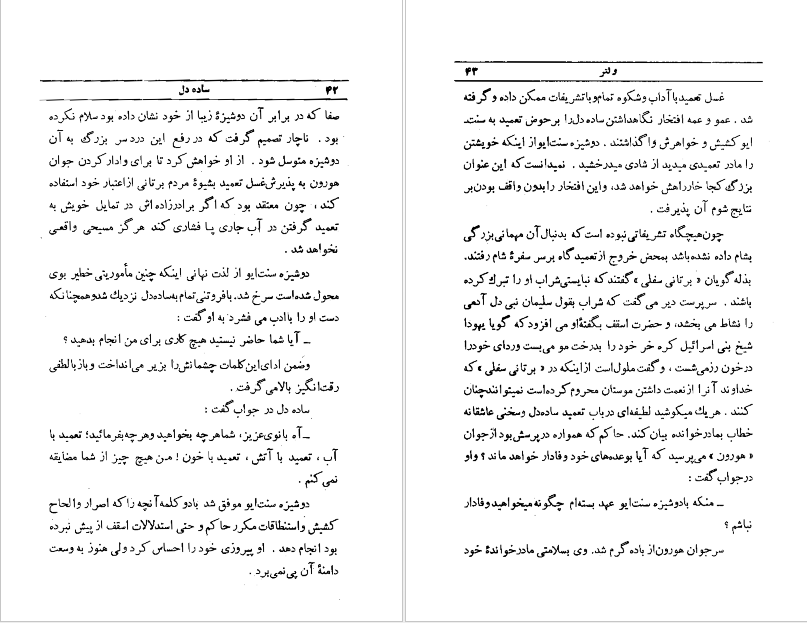 ۴۲ ساده دل
صفا که در برابر آن دوشیزهٔ زیبا از خود نشان داده بود سلام نکرده
بود . ناچار تصمیم گرفت که در رفع این دردسر بزرگ به آن
دوشیزه متوسل شود . از او خواهش کرد تا برای وادار کردن جوان
هورون به پذیرش غسل تعمید بشیوهٔ مردم برتانی از اعتبار خود استفاده
کند ، چون معتقد بود که اگر برادرزاده اش در تمایل خویش به
تعمید گرفتن در آب جاری پا فشاری کند هرگز مسیحی واقعی
نخواهد شد .
دوشیزه سنت ایو از لذت نهانی اینکه چنین مأموریتی خطیر بوی
محول شده است سرخ شد. با فروتنی تمام به ساده دل نزدیك شد و همچنانکه
دست او را با ادب می فشرد به او گفت :
ــ آیا شما حاضر نیستید هیچ کاری برای من انجام بدهید ؟
وضمن ادای این کلمات چشمانش را بزیر می انداخت و باز با لطفی
رقت انگیز بالا می گرفت .
ساده دل در جواب گفت :
ــ آه بانوی عزیز، شما هرچه بخواهید و هرچه بفرمائید؛ تعمید با
آب ، تعمید با آتش ، تعمید با خون ! من هیچ چیز از شما مضایقه
نمی کنم .
دوشیزه سنت ایو موفق شد با دو کلمه آنچه را که اصرار والحاح
کشیش واستنطاقات مکرر حاکم و حتی استدلالات اسقف از پیش نبرده
بود انجام دهد . او پیروزی خود را احساس کرد ولی هنوز به وسعت
دامنهٔ آن پی نمی برد .
ولتر ۴۳
غسل تعمید با آداب وشکوه تمام و با تشریفات ممکن داده و گرفته
شد . عمو و عمه افتخار نگاهداشتن ساده دل را بر حوض تعمید به سنت.
ایو کشیش و خواهرش وا گذاشتند . دوشیزه سنت ایو از اینکه خویشتن
را مادر تعمیدی میدید از شادی میدرخشید . نمیدانست که این عنوان
بزرگ کجا خار راهش خواهد شد، و این افتخار را بدون واقف بودن بر
نتایج شوم آن پذیرفت .
چون هیچگاه تشریفاتی نبوده است که بدنبال آن مهمانی بزرگی
بشام داده نشده باشد بمحض خروج از تعمیدگاه بر سر سفرهٔ شام رفتند.
بذله گویان « برتانی سفلی » گفتند که نبایستی شراب او را تبرك کرده
باشند . سرپرست دیر می گفت که شراب بقول سلیمان نبی دل آدمی
را نشاط می بخشد، و حضرت اسقف بگفتهٔ او می افزود که گویا یهودا
شیخ بنی اسرائیل کره خر خود را بدرخت مو می بست و ردای خود را
در خون رز می شست ، و گفت ملول است از اینکه در « برتانی سفلی » که
خداوند آنرا از نعمت داشتن موستان محروم کرده است نمیتوانند چنان
کنند . هر یك میکوشید لطیفه ای در باب تعمید ساده دل و سخنی عاشقانه
خطاب بمادر خوانده بیان کند. حاکم که همواره در پرسش بود از جوان
« هورون » می پرسید که آیا بوعده های خود وفادار خواهد ماند ؟ واو
در جواب گفت :
ــ منکه با دوشیزه سنت ایو عهد بسته ام چگونه میخواهید وفادار
نباشم ؟
سر جوان هورون از باده گرم شد. وی بسلامتی مادر خواندهٔ خود